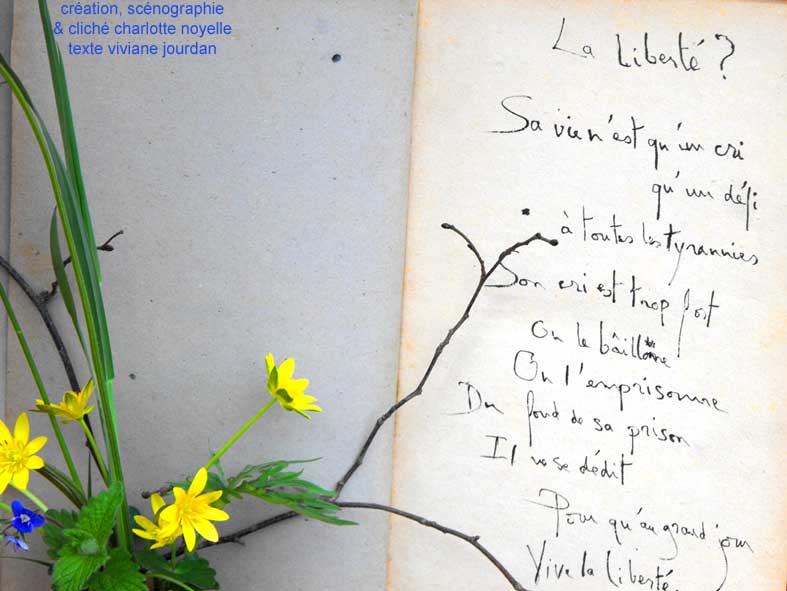 création, scénographie
& cliché charlotte noyelle
texte viviane jourdan
La Liberté ?
Sa vie n'est qu'un cri
qu'un défi
à toutes les tyrannies
Son cri est trop fort
On le bâillonne
On l'emprisonne
Du fond de sa prison
Il se dédit
Pour qu'au grand jour
Vive la Liberté.